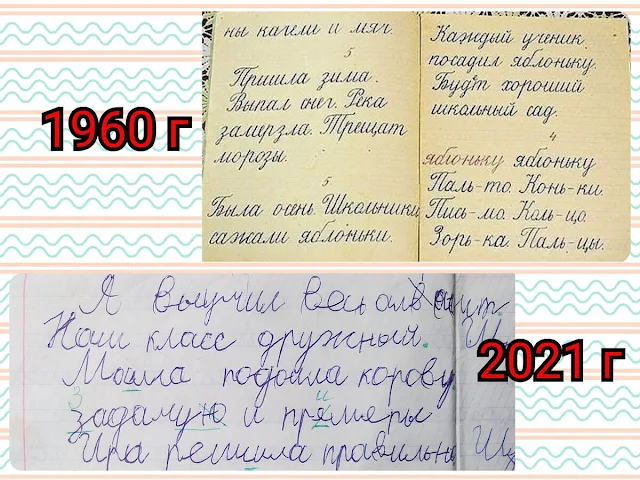 1960 г
ны качели и мяч.
5
Пришла зима.
Выпал снег. Река
замерзла. Трещат
морозы.
5.
Была осень. Школьники
сажали яблоньки.
Каждый ученик
посадил яблоньку.
Будет хороший
школьный сад.
4
яблоньку яблоньку
Паль-то. Конь-ки.
Пись-мо. Коль-цо.
Зорь-ка. Паль-цы.
2021 г
Я выучил весь
Наш класс дружный.
Мама подоила корову
и прямеры
Ира решила правильно